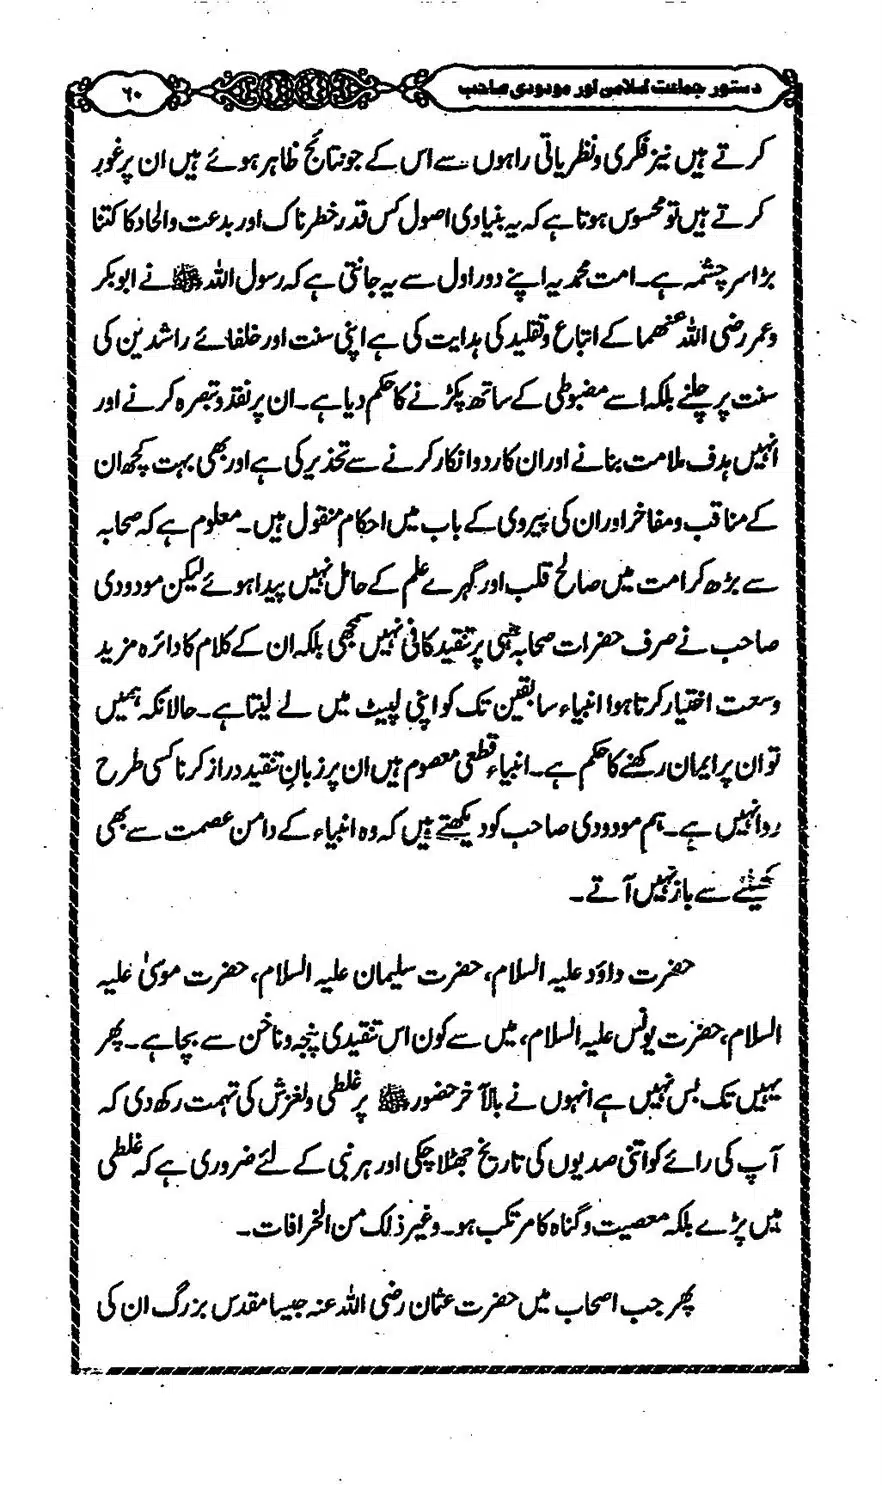 دستور جماعت اسلامی اور مودودی صاحب
۶۰
کرتے ہیں نیز فکری و نظریاتی راہوں سے اس کے جو نتائج ظاہر ہوئے ہیں ان پر غور
کرتے ہیں تو محسوس ہوتا ہے کہ یہ بنیادی اصول کس قدر خطرناک اور بدعت والحاد کا کتنا
بڑا سرچشمہ ہے۔ امت محمدیہ اپنے دور اول سے یہ جانتی ہے کہ رسول اللہ ﷺ نے ابوبکر
وعمر رضی اللہ عنھما کے اتباع و تقلید کی ہدایت کی ہے اپنی سنت اور خلفائے راشدین کی
سنت پر چلنے بلکہ اسے مضبوطی کے ساتھ پکڑنے کا حکم دیا ہے۔ ان پر نقد و تبصرہ کرنے اور
انہیں ہدف ملامت بنانے اور ان کا رد و انکار کرنے سے تحذیر کی ہے اور بھی بہت کچھ ان
کے مناقب و مفاخر اور ان کی پیروی کے باب میں احکام منقول ہیں۔ معلوم ہے کہ صحابہ
سے بڑھ کر امت میں صالح قلب اور گہرے علم کے حامل نہیں پیدا ہوئے لیکن مودودی
صاحب نے صرف حضرات صحابہ ہی پر تنقید کافی نہیں سمجھی بلکہ ان کے کلام کا دائرہ مزید
وسعت اختیار کرتا ہوا انبیاء سابقین تک کو اپنی لپیٹ میں لے لیتا ہے۔ حالانکہ ہمیں
تو ان پر ایمان رکھنے کا حکم ہے۔ انبیاء قطعی معصوم ہیں ان پر زبانِ تنقید دراز کرنا کسی طرح
روا نہیں ہے۔ ہم مودودی صاحب کو دیکھتے ہیں کہ وہ انبیاء کے دامن عصمت سے بھی
کھیلنے سے باز نہیں آتے۔
حضرت داؤد علیہ السلام، حضرت سلیمان علیہ السلام، حضرت موسیٰ علیہ
السلام، حضرت یونس علیہ السلام، میں سے کون اس تنقیدی پنجہ و ناخن سے بچا ہے۔ پھر
یہیں تک بس نہیں ہے انہوں نے بالآخر حضور ﷺ پر غلطی و لغزش کی تہمت رکھ دی کہ
آپ کی رائے کو اتنی صدیوں کی تاریخ جھٹلا چکی اور ہر نبی کے لئے ضروری ہے کہ غلطی
میں پڑے بلکہ معصیت و گناہ کا مرتکب ہو۔ وغیر ذلک من الخرافات۔
پھر جب اصحاب میں حضرت عثمان رضی اللہ عنہ جیسا مقدس بزرگ ان کی